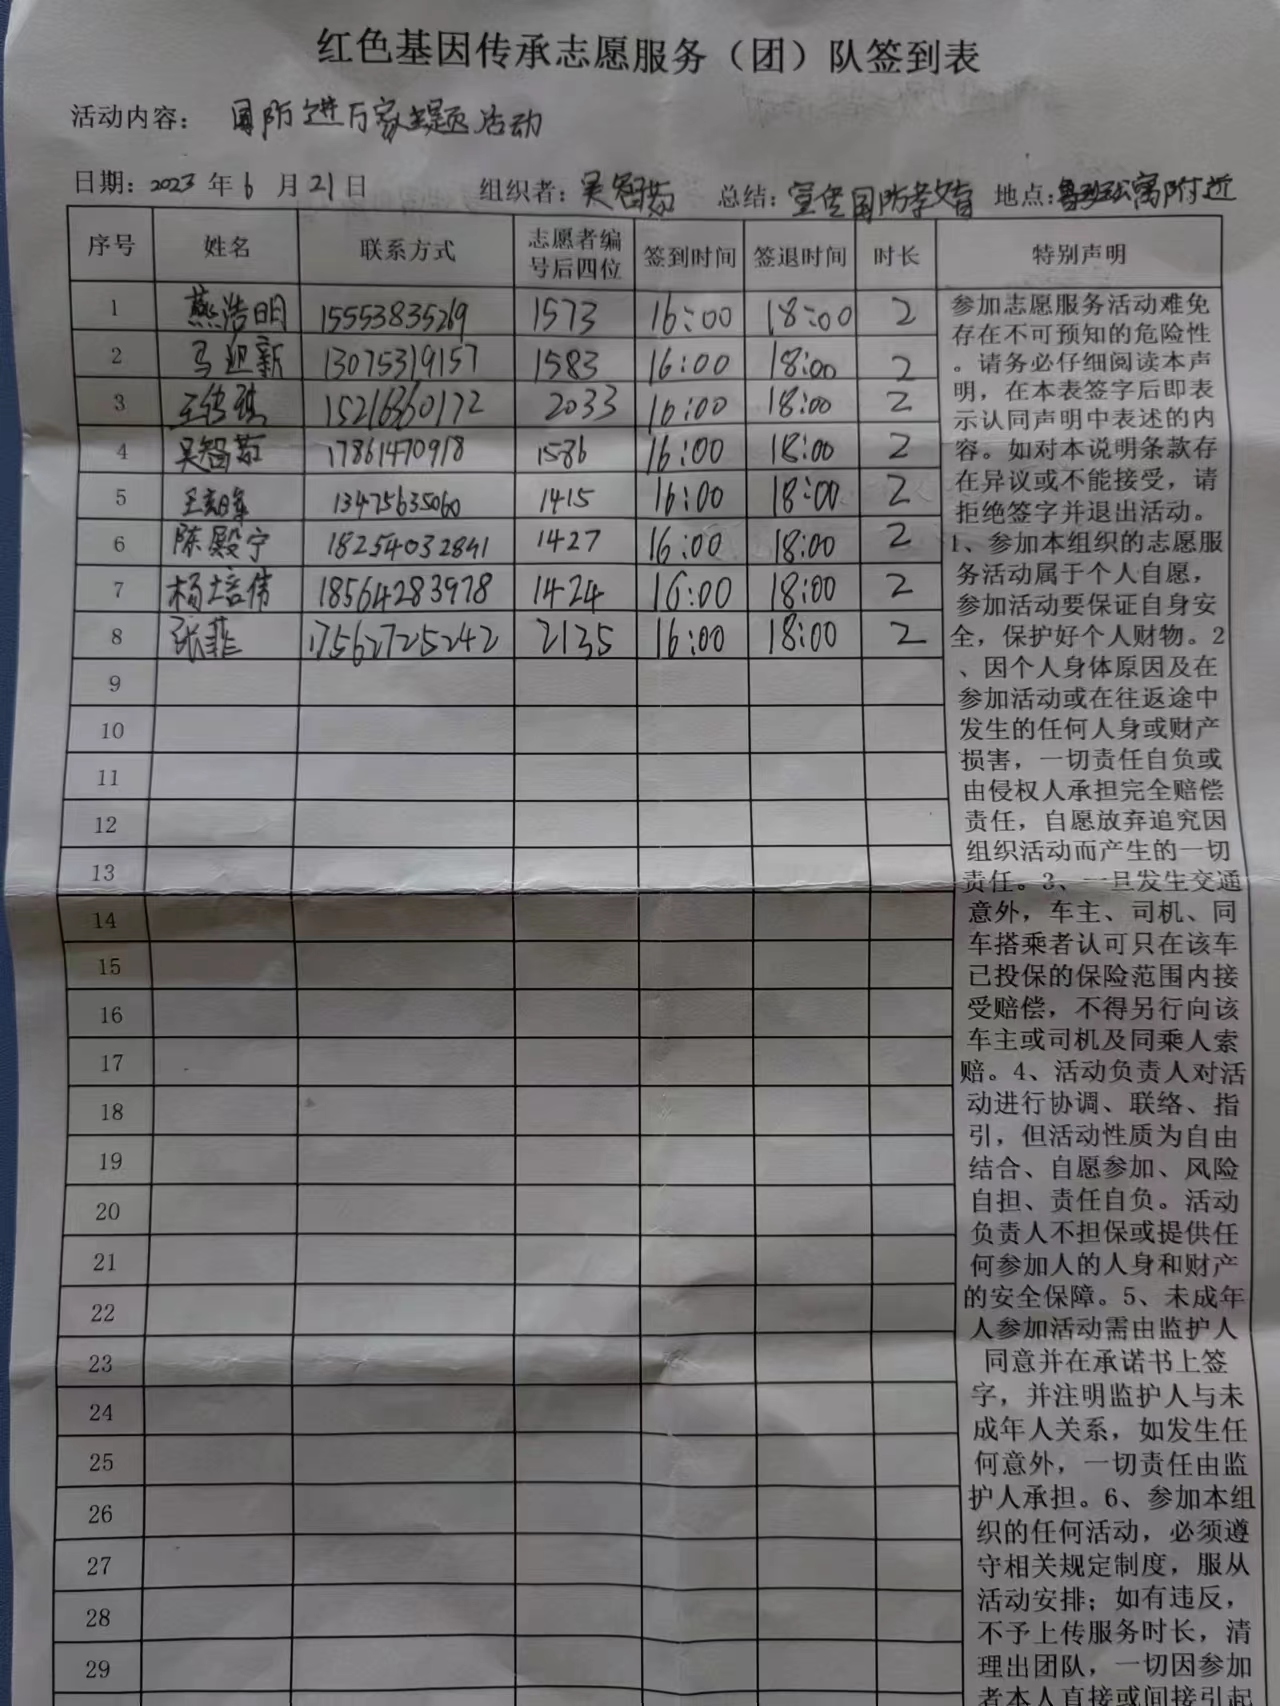 红色基因传承志愿服务（团）队签到表
活动内容： 国防进万家主题活动
日期：2023 年 6 月 21 日 组织者：吴智茹 总结：宣传国防教育 地点：鲁班公寓附近
序号 姓名 联系方式 志愿者编号后四位 签到时间 签退时间 时长 特别声明
1 燕浩明 15553835269 1573 16:00 18:00 2
2 马迎新 13075319157 1583 16:00 18:00 2
3 15216360172 2033 16:00 18:00 2
4 吴智茹 17861470918 1586 16:00 18:00 2
5 13475635060 1415 16:00 18:00 2
6 陈殿宁 18254032841 1427 16:00 18:00 2
7 杨培伟 18564283978 1424 16:00 18:00 2
8 张菲 17562725242 2135 16:00 18:00 2
9
10
11
12
13
14
15
16
17
18
19
20
21
22
23
24
25
26
27
28
29
参加志愿服务活动难免
存在不可预知的危险性
。请务必仔细阅读本声
明，在本表签字后即表
示认同声明中表述的内
容。如对本说明条款存
在异议或不能接受，请
拒绝签字并退出活动。
1、参加本组织的志愿服
务活动属于个人自愿，
参加活动要保证自身安
全，保护好个人财物。2
、因个人身体原因及在
参加活动或在往返途中
发生的任何人身或财产
损害，一切责任自负或
由侵权人承担完全赔偿
责任，自愿放弃追究因
组织活动而产生的一切
责任。3、一旦发生交通
意外，车主、司机、同
车搭乘者认可只在该车
已投保的保险范围内接
受赔偿，不得另行向该
车主或司机及同乘人索
赔。4、活动负责人对活
动进行协调、联络、指
引，但活动性质为自由
结合、自愿参加、风险
自担、责任自负。活动
负责人不担保或提供任
何参加人的人身和财产
的安全保障。5、未成年
人参加活动需由监护人
同意并在承诺书上签
字，并注明监护人与未
成年人关系，如发生任
何意外，一切责任由监
护人承担。6、参加本组
织的任何活动，必须遵
守相关规定制度，服从
活动安排；如有违反，
不予上传服务时长，清
理出团队，一切因参加
者本人直接或间接引起